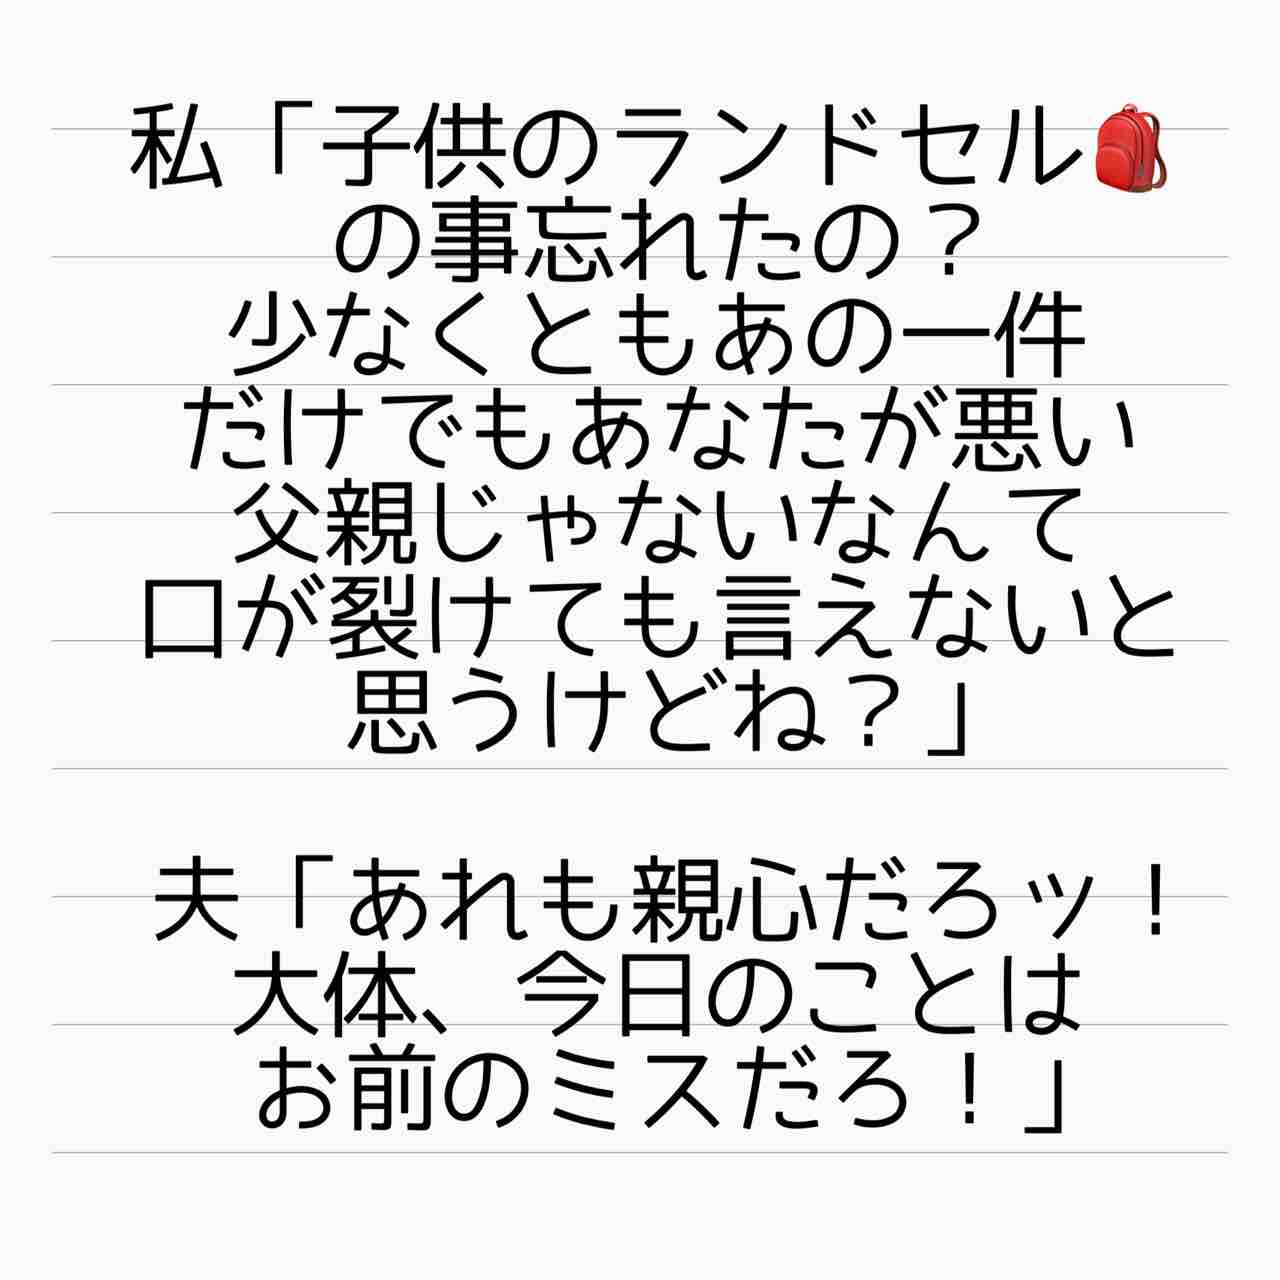 私「子供のランドセル🎒
の事忘れたの？
少なくともあの一件
だけでもあなたが悪い
父親じゃないなんて
口が裂けても言えないと
思うけどね？」
夫「あれも親心だろッ！
大体、今日のことは
お前のミスだろ！」